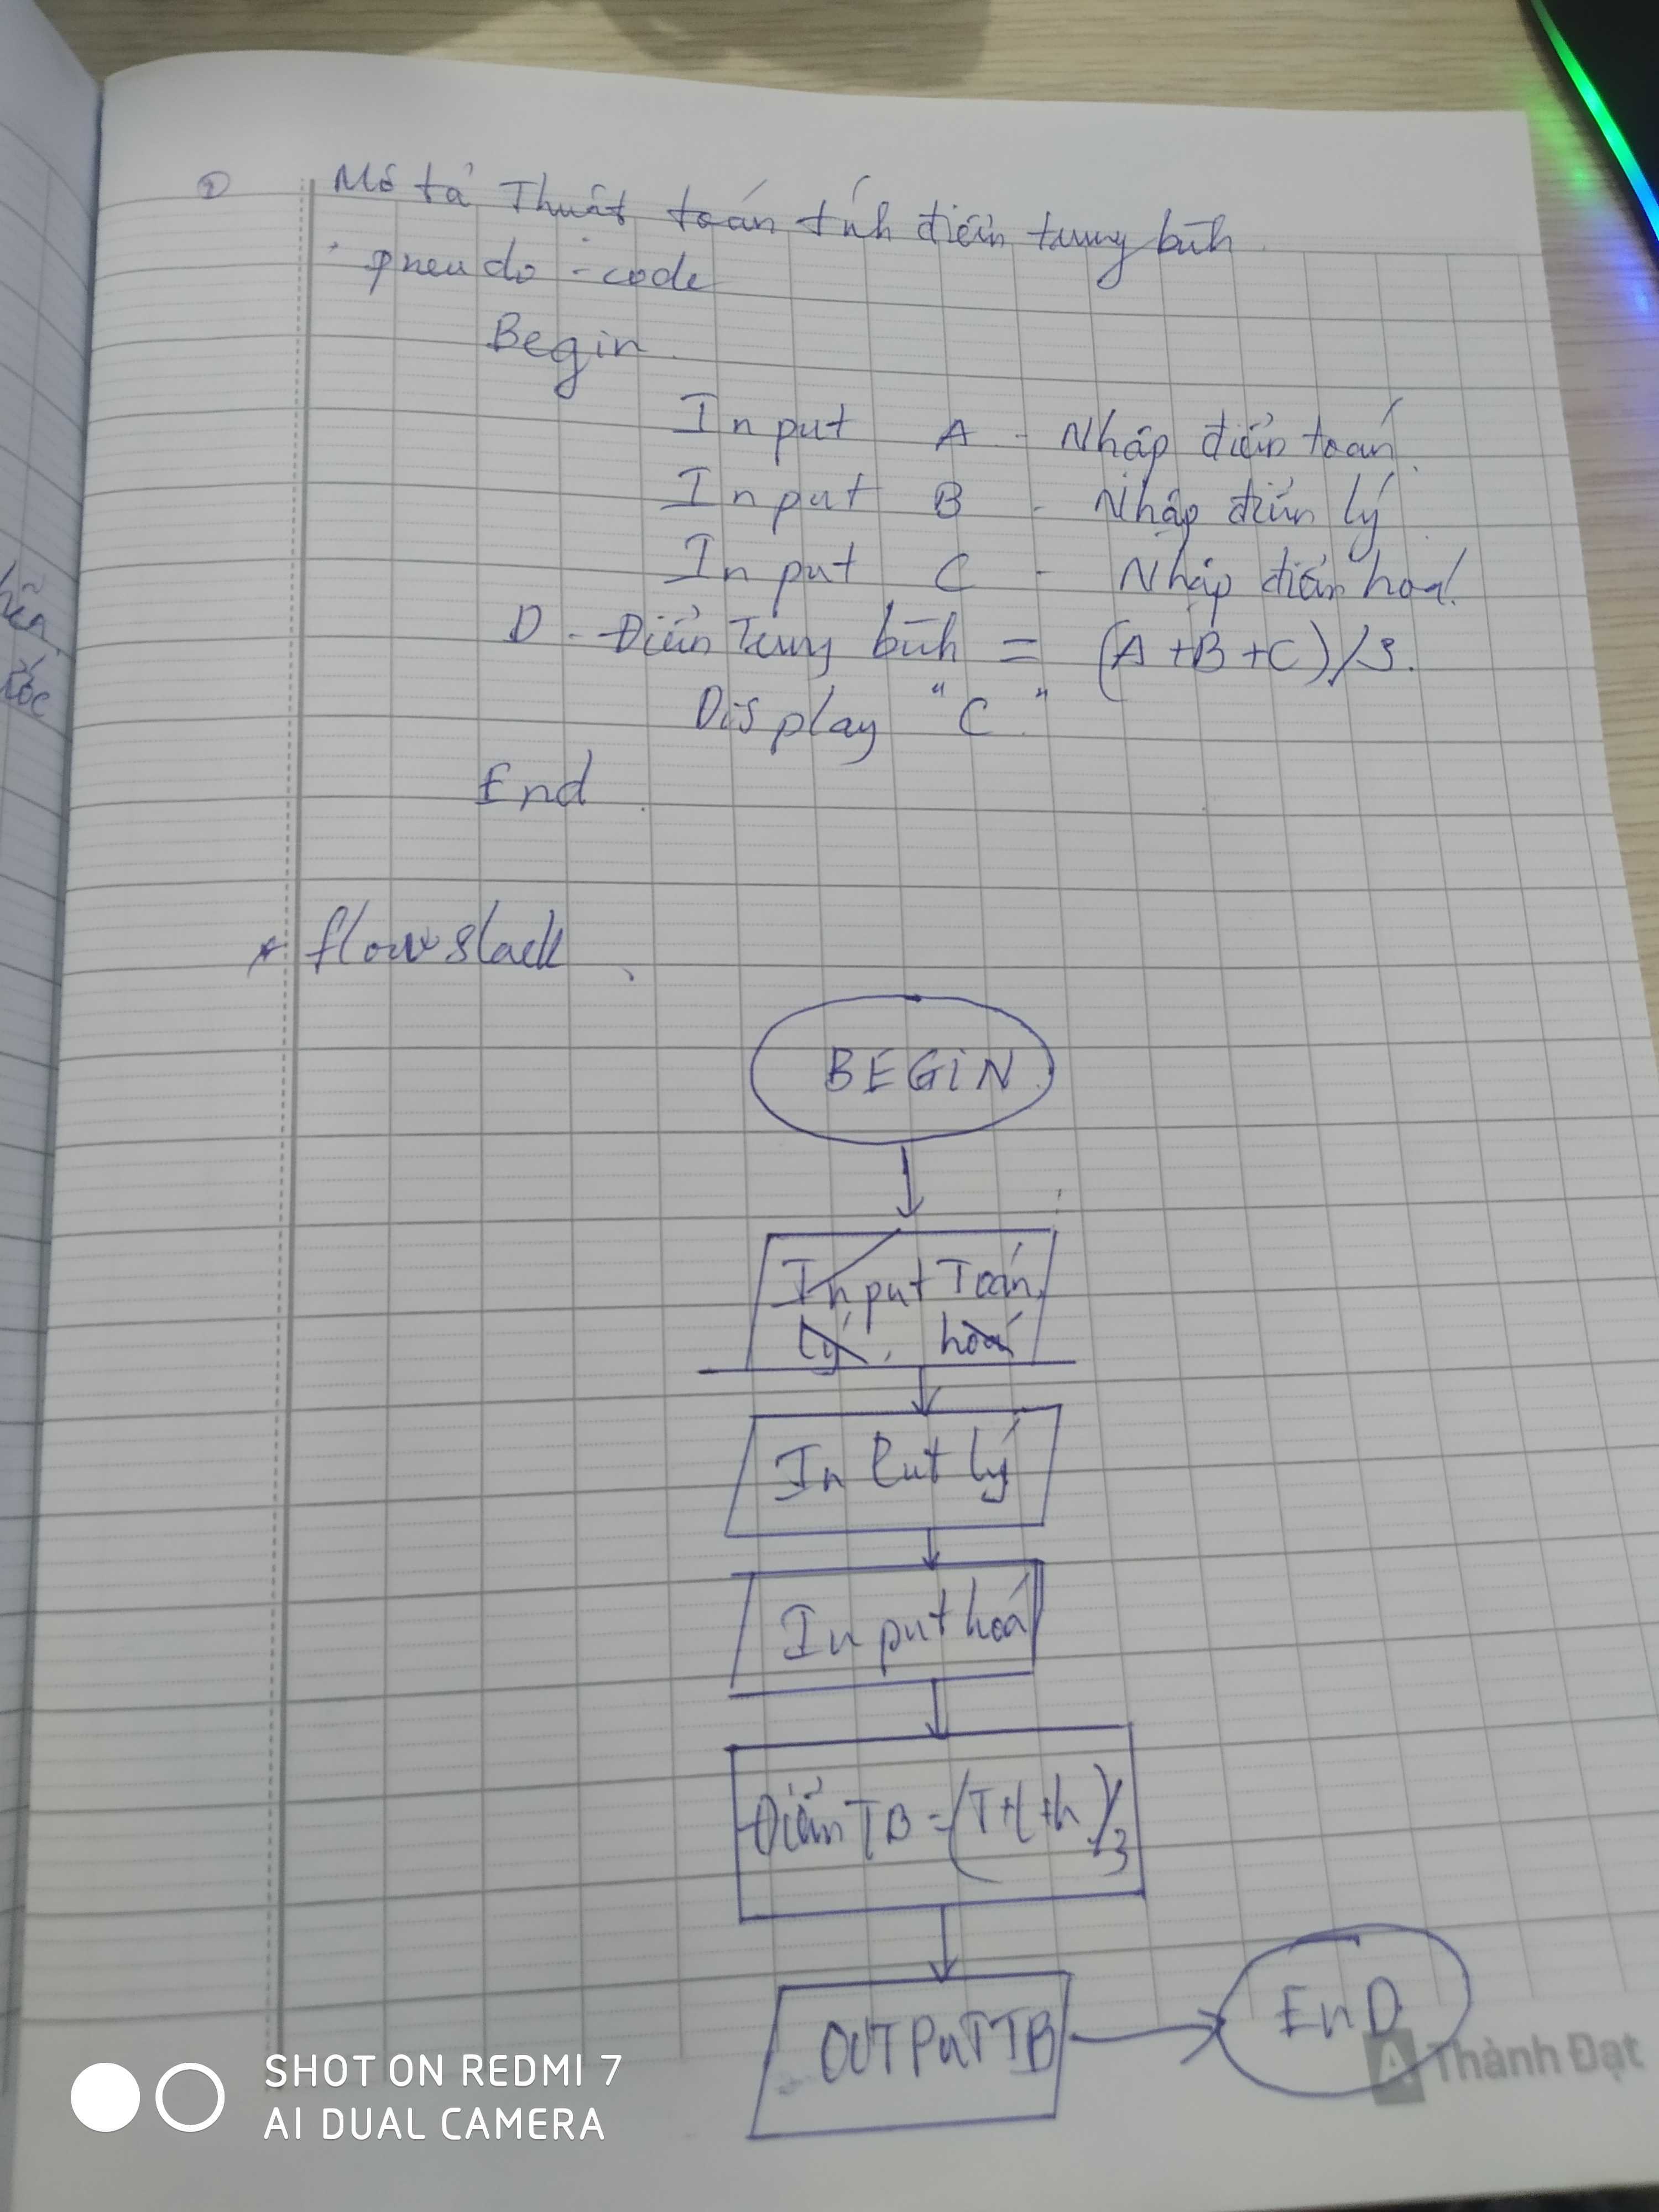 Mô tả Thuật toán tính điểm trung bình
pneudo - code
Begin
Input A - Nhập điểm toán
Input B - Nhập điểm lý
Input C - Nhập điểm hoá
D - Điểm Trung bình = (A+B+C)/3.
Display "C"
End
* flow slack
BEGIN
Input Toán,
lý, hoá
Input lý
Input hoá
Điểm TB = (T+l+h)/3
OUTPUT TB
EnD
Thành Đạt
SHOT ON REDMI 7
AI DUAL CAMERA